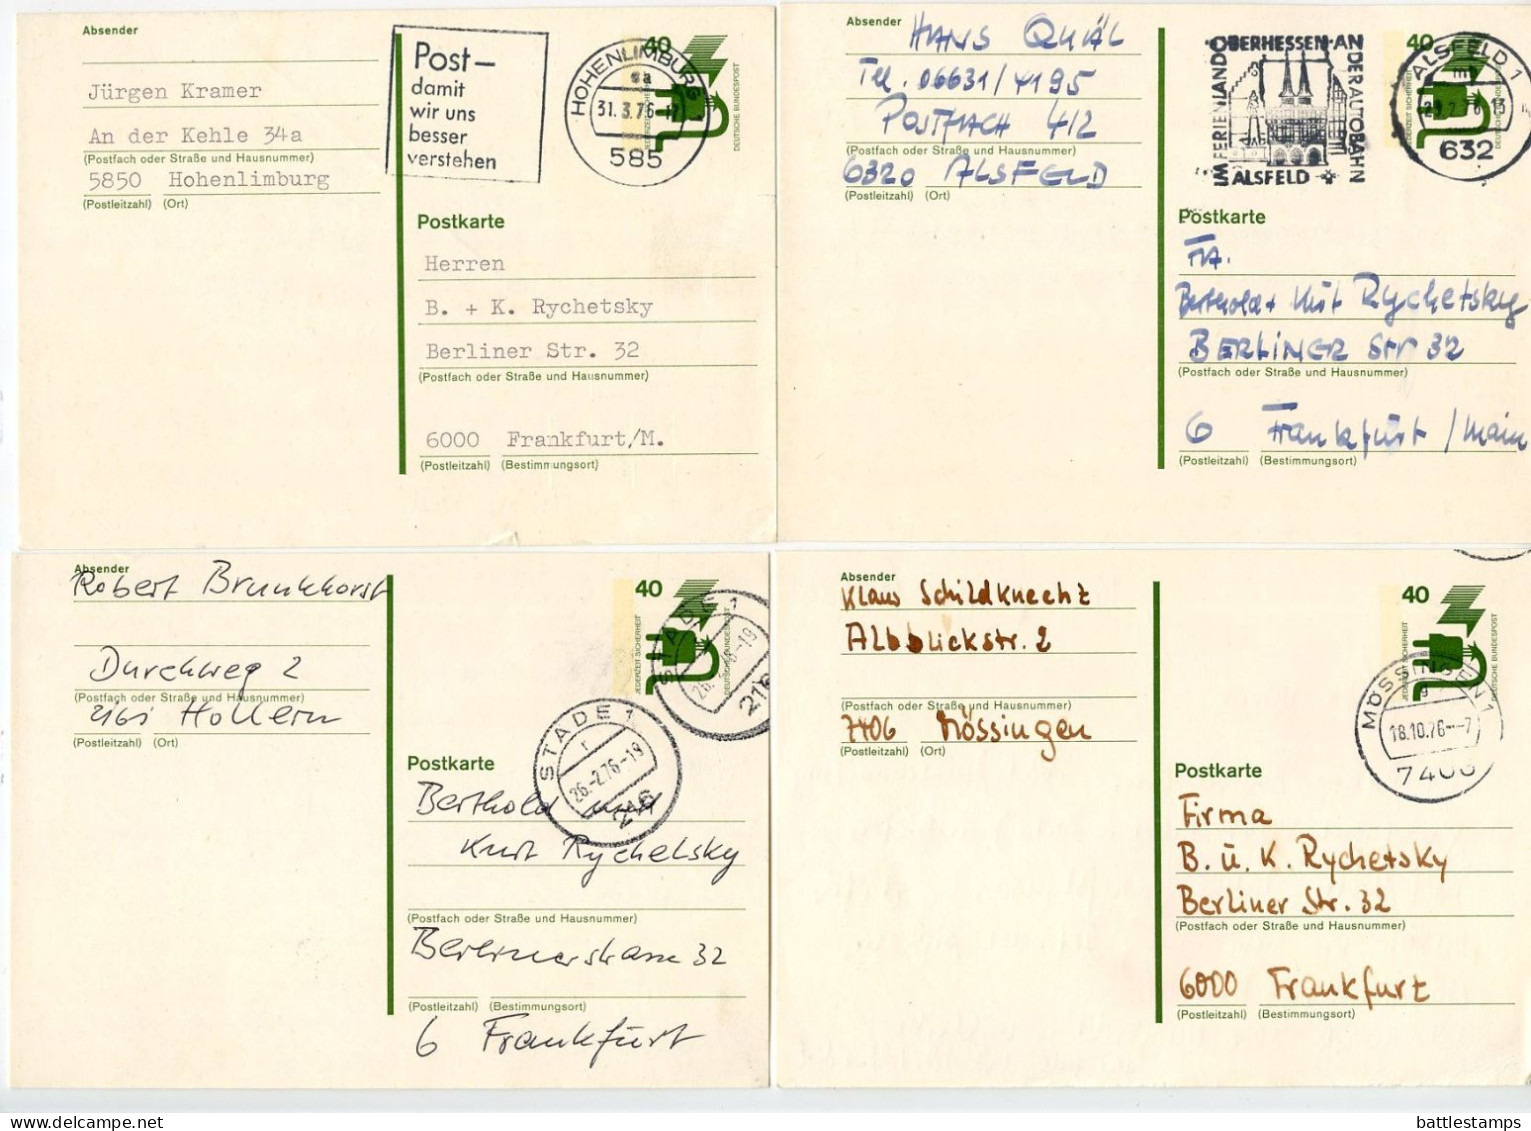 Absender
Jürgen Kramer
An der Kehle 34a
(Postfach oder Straße und Hausnummer)
5850 Hohenlimburg
(Postleitzahl) (Ort)
Post—
damit
wir uns
besser
verstehen
HOHENLIMBURG
31.3.76-17
585
40
JEDERZEIT SICHERHEIT
DEUTSCHE BUNDESPOST
Postkarte
Herren
B. + K. Rychetsky
Berliner Str. 32
(Postfach oder Straße und Hausnummer)
6000 Frankfurt/M.
(Postleitzahl) (Bestimmungsort)
Absender
HANS QUÄL
Tel. 06631/4195
POSTFACH 412
(Postfach oder Straße und Hausnummer)
6320 ALSFELD
(Postleitzahl) (Ort)
IM FERIENLAND OBERHESSEN AN DER AUTOBAHN
ALSFELD
ALSFELD 1
632
40
JEDERZEIT SICHERHEIT
DEUTSCHE BUNDESPOST
Postkarte
FA.
Berthold + Kurt Rychetsky
BERLINER Str 32
(Postfach oder Straße und Hausnummer)
6 Frankfurt/Main
(Postleitzahl) (Bestimmungsort)
Absender
Robert Brunkhorst
Durchweg 2
(Postfach oder Straße und Hausnummer)
2161 Hollern
(Postleitzahl) (Ort)
40
JEDERZEIT SICHERHEIT
DEUTSCHE BUNDESPOST
STADE 1
26.-2.76-19
216
STADE 1
26.-2.76-19
216
Postkarte
Berthold und
Kurt Rychetsky
(Postfach oder Straße und Hausnummer)
Berlinerstrasse 32
(Postleitzahl) (Bestimmungsort)
6 Frankfurt
Absender
Klaus Schildknecht
Albblickstr. 2
(Postfach oder Straße und Hausnummer)
7406 Mössingen
(Postleitzahl) (Ort)
40
JEDERZEIT SICHERHEIT
DEUTSCHE BUNDESPOST
MÖSSINGEN 1
g
18.10.76--7
7406
Postkarte
Firma
B. u. K. Rychetsky
Berliner Str. 32
(Postfach oder Straße und Hausnummer)
6000 Frankfurt
(Postleitzahl) (Bestimmungsort)
battlestamps